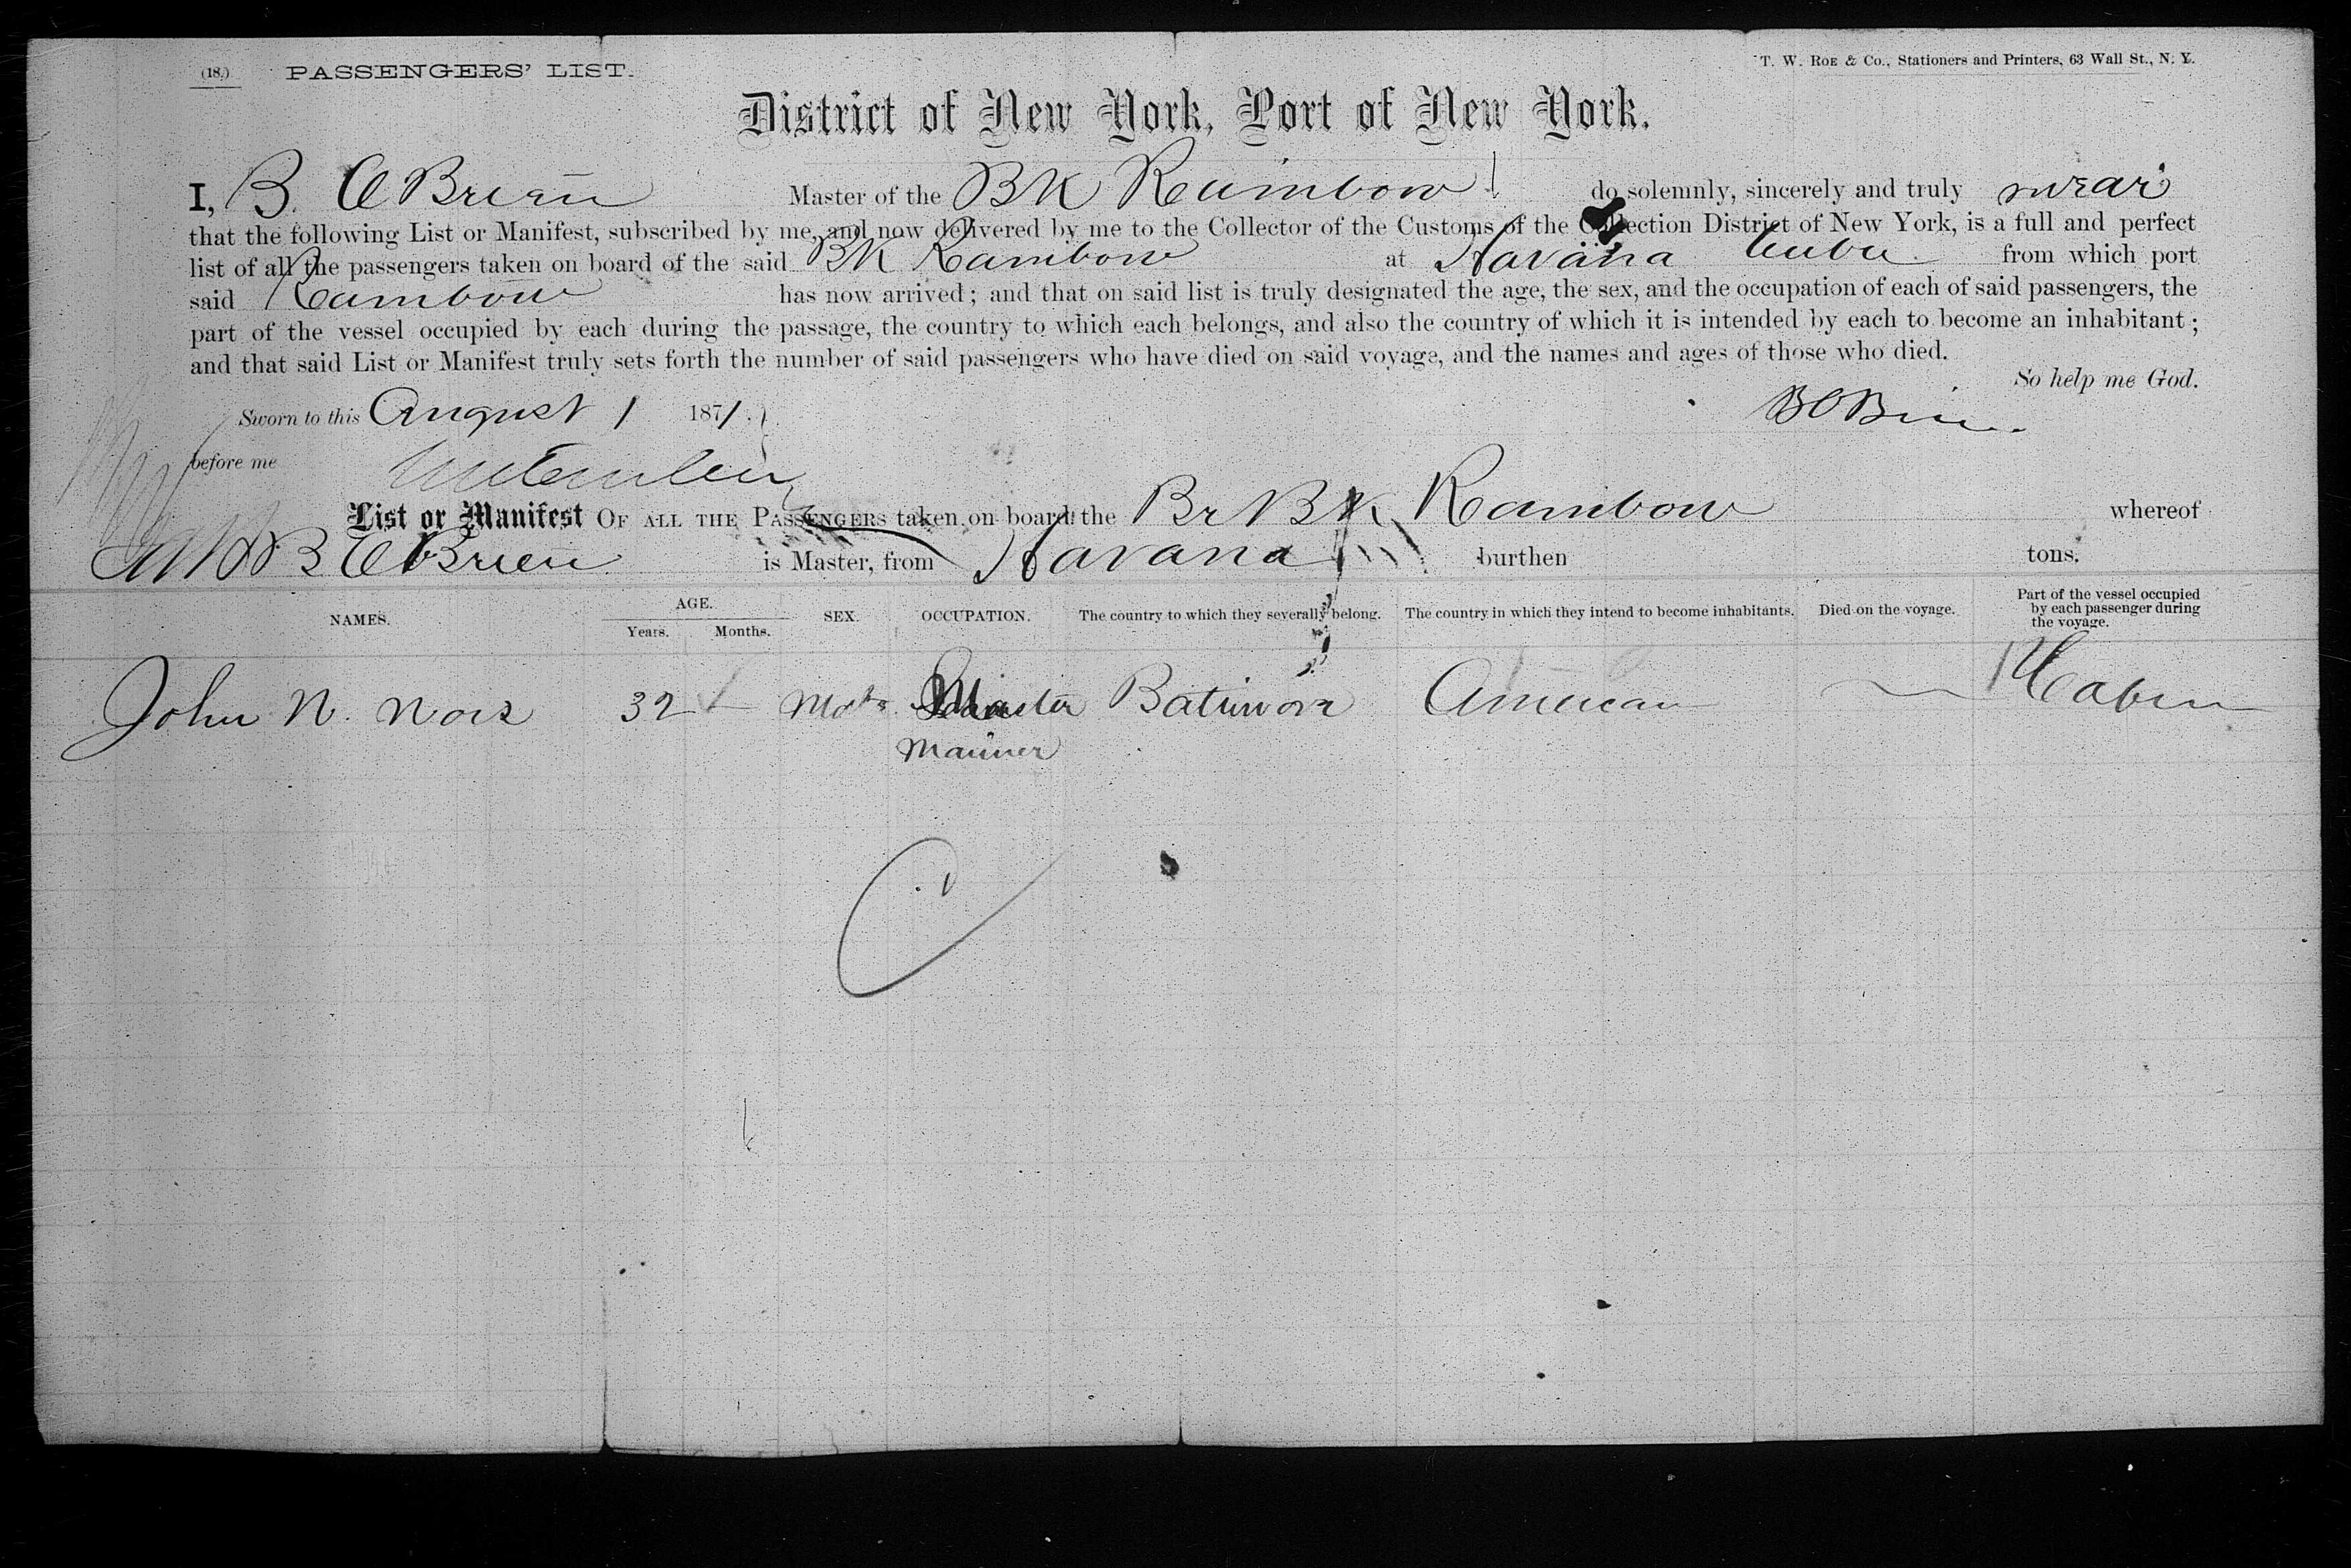 (18.) PASSENGERS' LIST.
T. W. ROE & Co., Stationers and Printers, 63 Wall St., N. Y.
District of New York, Port of New York.
I, B. O Brien Master of the BK Rainbow do solemnly, sincerely and truly swear
that the following List or Manifest, subscribed by me, and now delivered by me to the Collector of the Customs of the Collection District of New York, is a full and perfect
list of all the passengers taken on board of the said BK Rainbow at Havana Cuba from which port
said Rainbow has now arrived; and that on said list is truly designated the age, the sex, and the occupation of each of said passengers, the
part of the vessel occupied by each during the passage, the country to which each belongs, and also the country of which it is intended by each to become an inhabitant;
and that said List or Manifest truly sets forth the number of said passengers who have died on said voyage, and the names and ages of those who died.
So help me God.
Sworn to this August 1 1871. B O Brien
before me
List or Manifest OF ALL THE PASSENGERS taken on board the Br BK Rainbow whereof
B O Brien is Master, from Havana burthen tons.
NAMES. AGE. Years. Months. SEX. OCCUPATION. The country to which they severally belong. The country in which they intend to become inhabitants. Died on the voyage. Part of the vessel occupied by each passenger during the voyage.
John N. 32 Master Batimore American Cabin
Mariner